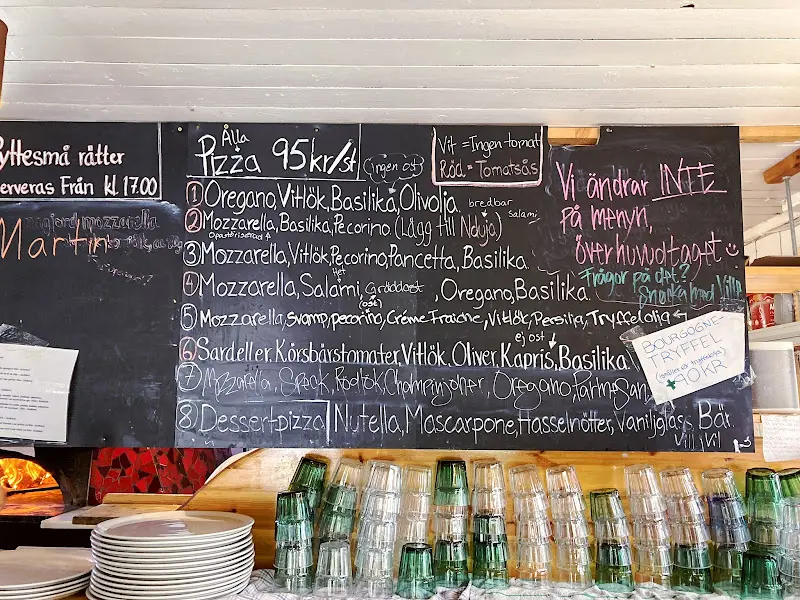 yttesmå rätter
erveras Från kl. 17.00
Martin
Alla
Pizza 95kr/st
(ingen ost)
Vit = Ingen tomat
Röd = Tomatsås
① Oregano, Vitlök, Basilika, Olivolja.
bredbar
salami
② Mozzarella, Basilika, Pecorino. (Lägg till Nduja)
Opastöriserad
③ Mozzarella, Vitlök, Pecorino, Pancetta, Basilika.
Het
④ Mozzarella, Salami, Gräddost, Oregano, Basilika.
(ost)
⑤ Mozzarella, Svamp, pecorino, Créme Fraiche, Vitlök, Persilja, Tryffelolja
ej ost
⑥ Sardeller, Körsbärstomater, Vitlök, Oliver, Kapris, Basilika.
⑦ Mozzarella, Speck, Rödlök, Champinjoner, Oregano, Parmesan
⑧ Dessertpizza Nutella, Mascarpone, Hasselnötter, Vaniljglass, Bär.
Vi ändrar INTE
på menyn,
överhuvudtaget
Frågor på det?
Snacka med
BOURGOGNE-
TRYFFEL